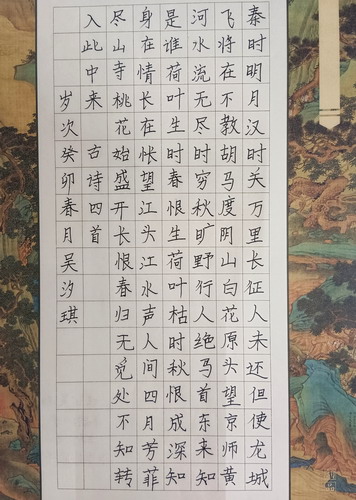 秦时明月汉时关万里长征人未还但使龙城
飞将在不教胡马度阴山白花原头望京师黄
河水流无尽时穷秋旷野行人绝马首东来知
是谁荷叶生时春恨生荷叶枯时秋恨成深知
身在情长在怅望江头江水声人间四月芳菲
尽山寺桃花始盛开长恨春归无觅处不知转
入此中来 古诗四首
岁次癸卯春月吴汐琪